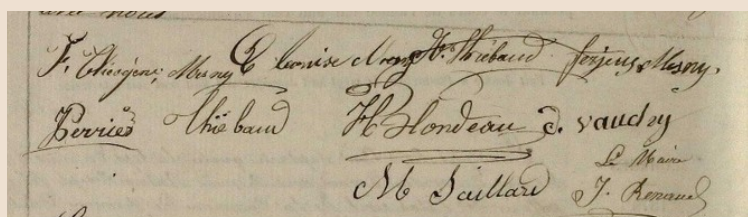 avec nous
F. Théogène Mesny E Leonise Mesny V. Thiébaud ferjeux Mesny.
Perrier Thiébaud H. Blondeau J. Vaudry
Le Maire
M Saillard J. Renaud